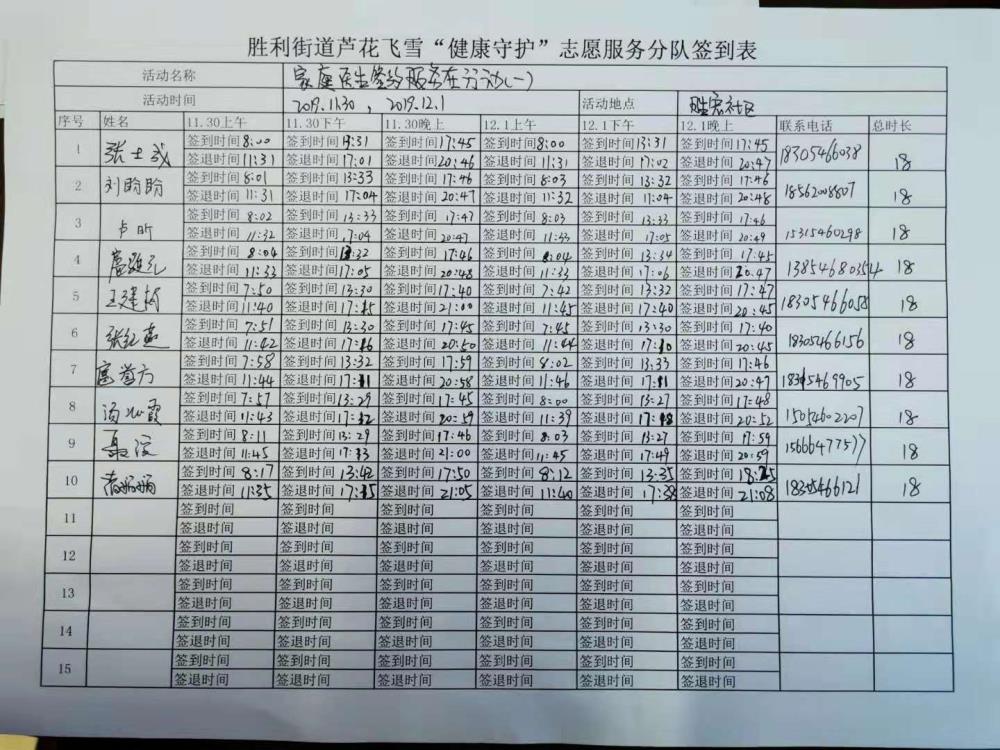 胜利街道芦花飞雪“健康守护”志愿服务分队签到表
活动名称 家庭医生签约服务在行动(一)
活动时间 2019.11.30，2019.12.1 活动地点 胜宏社区
序号 姓名 11.30上午 11.30下午 11.30晚上 12.1上午 12.1下午 12.1晚上 联系电话 总时长
1 张士武 签到时间8:00 签到时间13:31 签到时间17:45 签到时间8:00 签到时间13:31 签到时间17:45 18305466038 18
签退时间11:31 签退时间17:01 签退时间20:46 签退时间11:31 签退时间17:02 签退时间20:47
2 刘盼盼 签到时间8:01 签到时间13:33 签到时间17:46 签到时间8:03 签到时间13:32 签到时间17:46 18562008807 18
签退时间11:31 签退时间17:04 签退时间20:47 签退时间11:32 签退时间17:04 签退时间20:48
3 卢昕 签到时间8:02 签到时间13:33 签到时间17:47 签到时间8:03 签到时间13:33 签到时间17:46 15315460298 18
签退时间11:32 签退时间17:04 签退时间20:47 签退时间11:33 签退时间17:05 签退时间20:49
4 签到时间8:04 签到时间13:32 签到时间17:46 签到时间8:04 签到时间13:34 签到时间17:45 13854680354 18
签退时间11:33 签退时间17:05 签退时间20:48 签退时间11:33 签退时间17:06 签退时间20:47
5 签到时间7:50 签到时间13:30 签到时间17:40 签到时间7:42 签到时间13:32 签到时间17:47 18305466058 18
签退时间11:40 签退时间17:15 签退时间21:00 签退时间11:45 签退时间17:40 签退时间20:45
6 张红燕 签到时间7:51 签到时间13:30 签到时间17:45 签到时间7:45 签到时间13:30 签到时间17:40 18305466156 18
签退时间11:42 签退时间17:16 签退时间20:50 签退时间11:44 签退时间17:10 签退时间20:45
7 签到时间7:58 签到时间13:32 签到时间17:59 签到时间8:02 签到时间13:33 签到时间17:46 18305469905 18
签退时间11:44 签退时间17:11 签退时间20:58 签退时间11:46 签退时间17:11 签退时间20:47
8 签到时间7:57 签到时间13:29 签到时间17:45 签到时间8:00 签到时间13:27 签到时间17:48 15054602207 18
签退时间11:43 签退时间17:12 签退时间20:59 签退时间11:39 签退时间17:18 签退时间20:52
9 签到时间8:11 签到时间13:29 签到时间17:46 签到时间8:03 签到时间13:27 签到时间17:59 15666477577 18
签退时间11:45 签退时间17:13 签退时间21:00 签退时间11:45 签退时间17:49 签退时间20:59
10 签到时间8:17 签到时间13:42 签到时间17:50 签到时间8:12 签到时间13:35 签到时间 18305466121 18
签退时间11:35 签退时间17:15 签退时间21:05 签退时间11:40 签退时间17:38 签退时间21:08
11 签到时间 签到时间 签到时间 签到时间 签到时间 签到时间
签退时间 签退时间 签退时间 签退时间 签退时间 签退时间
12 签到时间 签到时间 签到时间 签到时间 签到时间 签到时间
签退时间 签退时间 签退时间 签退时间 签退时间 签退时间
13 签到时间 签到时间 签到时间 签到时间 签到时间 签到时间
签退时间 签退时间 签退时间 签退时间 签退时间 签退时间
14 签到时间 签到时间 签到时间 签到时间 签到时间 签到时间
签退时间 签退时间 签退时间 签退时间 签退时间 签退时间
15 签到时间 签到时间 签到时间 签到时间 签到时间 签到时间
签退时间 签退时间 签退时间 签退时间 签退时间 签退时间